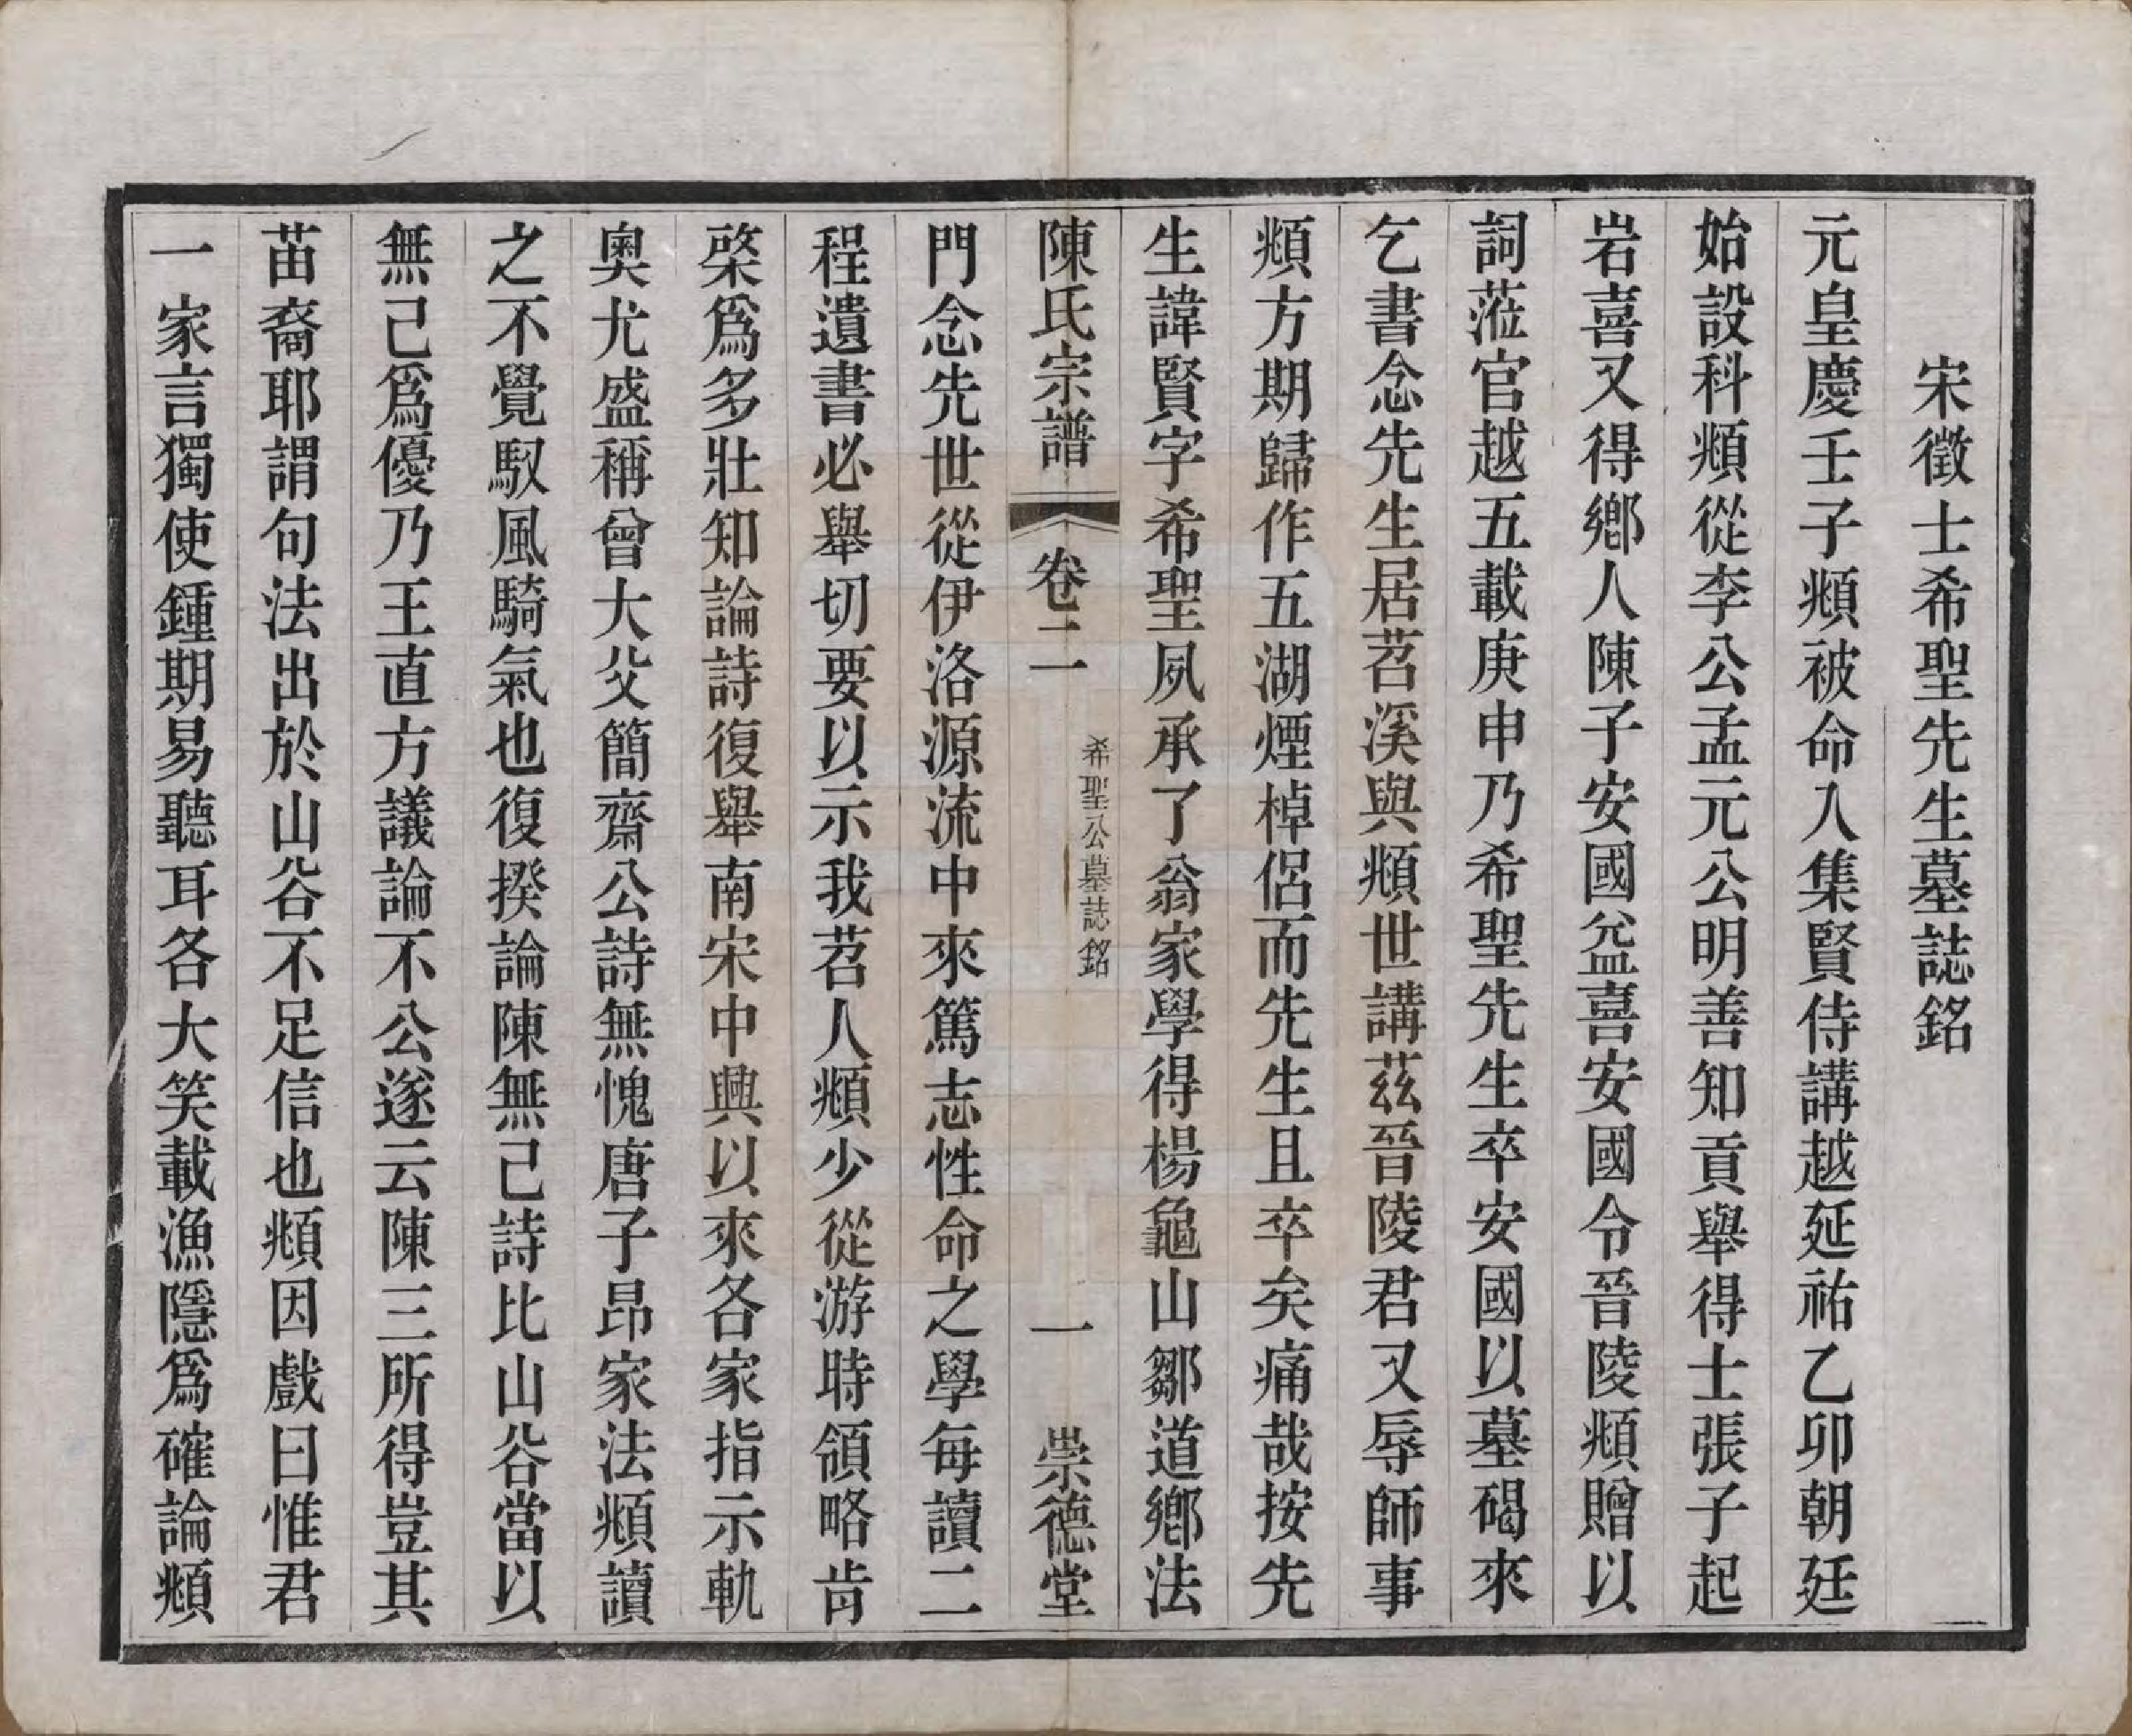 宋徵士希聖先生墓誌銘
元皇慶壬子頫被命入集賢侍講越延祐乙卯朝廷
始設科頫從李公孟元公明善知貢舉得士張子起
岩喜又得鄉人陳子安國益喜安國令晉陵頫贈以
詞蒞官越五載庚申乃希聖先生卒安國以墓碣來
乞書念先生居苕溪與頫世講茲晉陵君又辱師事
頫方期歸作五湖煙棹侶而先生且卒矣痛哉按先
生諱賢字希聖夙承了翁家學得楊龜山鄒道鄉法
陳氏宗譜 卷二 希聖公墓誌銘 一 崇德堂
門念先世從伊洛源流中來篤志性命之學每讀二
程遺書必舉切要以示我苕人頫少從游時領略肯
棨為多壯知論詩復舉南宋中興以來各家指示軌
奧尤盛稱曾大父簡齋公詩無愧唐子昂家法頫讀
之不覺馭風騎氣也復揆論陳無己詩比山谷當以
無己為優乃王直方議論不公遂云陳三所得豈其
苗裔耶謂句法出於山谷不足信也頫因戲曰惟君
一家言獨使鍾期易聽耳各大笑載漁隱為確論頫